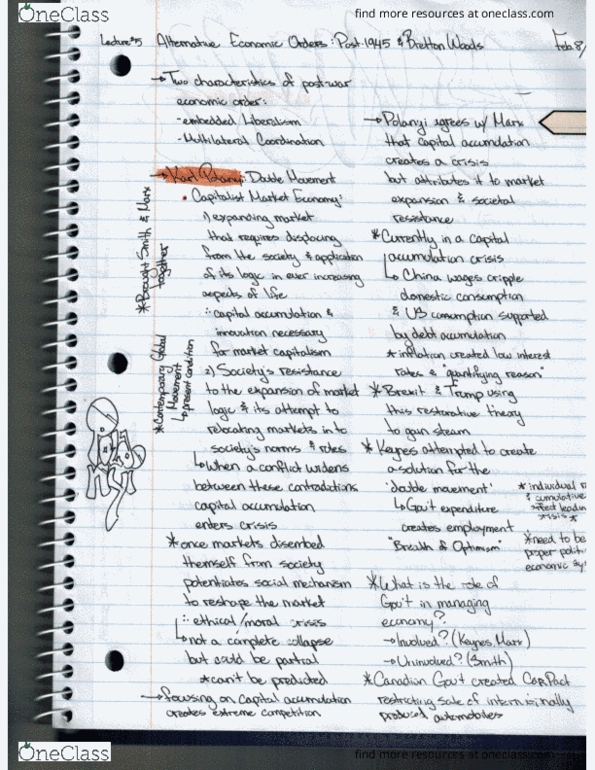 OneClass
find more resources at oneclass.com
Lecture #5 Alternative Economic Orders: Post-1945 & Bretton Woods Feb 8/
→ Two characteristics of post-war
economic order:
- embedded Liberalism
- Multilateral Coordination
→ Karl Polanyi: Double Movement
• Capitalist Market Economy:
1) expanding market
that requires displacing
from the society & application
of its logic in ever increasing
aspects of life
∴ capital accumulation &
innovation necessary
for market capitalism
2) Society's resistance
to the expansion of market
logic & its attempt to
relocating markets in to
society's norms & rules
↳ When a conflict widens
between these contradictions
capital accumulation
enters crisis
* once markets disembed
themself from society
potentiates social mechanism
to reshape the market
∴ ethical/moral crisis
↳ not a complete collapse
but could be partial
* can't be predicted
→ focusing on capital accumulation
creates extreme competition
* Brought Smith & Marx
together
* Contemporary Global
Movement
↳ present condition
→ Polanyi agrees w/ Marx
that capital accumulation
creates a crisis
but attributes it to market
expansion & societal
resistance
* Currently in a capital
accumulation crisis
↳ China wages cripple
domestic consumption
& US consumption supported
by debt accumulation
* inflation created low interest
rates & "quantifying reason"
* Brexit & Trump using
this restorative theory
to gain steam
* Keynes attempted to create
a solution for the
'double movement'
↳ Gov't expenditure
creates employment
"Breath of Optimism"
* individual
& cumulative
effect leadin
crisis *
* need to be
proper polit
economic sy
* What is the role of
Gov't in managing
economy?
→ Involved? (Keynes, Marx)
→ Uninvolved? (Smith)
* Canadian Gov't created CarPact
restricting sale of internationally
produced automobiles
OneClass
find more resources at oneclass.com